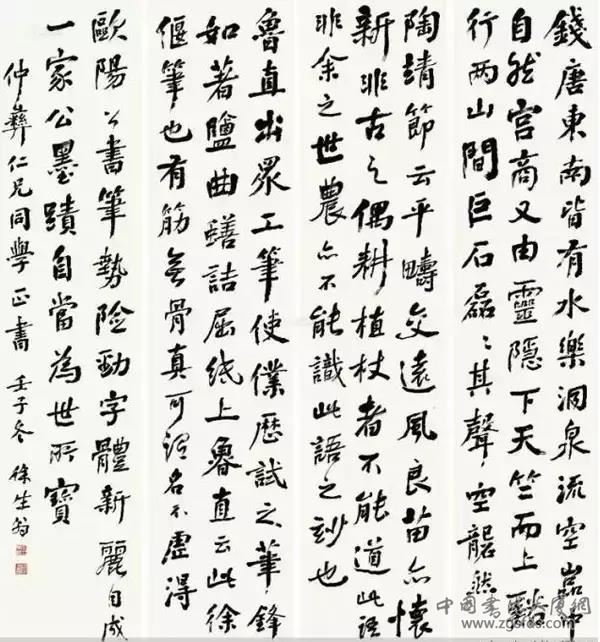 錢唐東南皆有水樂洞泉流空巖中
自然宮商又由靈隱下天竺而上谿
行两山間巨石磊々其聲空礲然
陶靖節云平疇交遠風良苗亦懷
新非古之偶耕植杖者不能道此語
非余之世農亦不能識此語之妙也
魯直出眾工筆使僕歷試之筆鋒
如著鹽曲蟮詰屈紙上魯直云此徐
偃筆也有筋無骨真可謂名不虛得
歐陽公書筆勢險勁字體新麗自成
一家公墨蹟自當為世所寶
仲彝仁兄同學正書 壬子冬 徐生翁